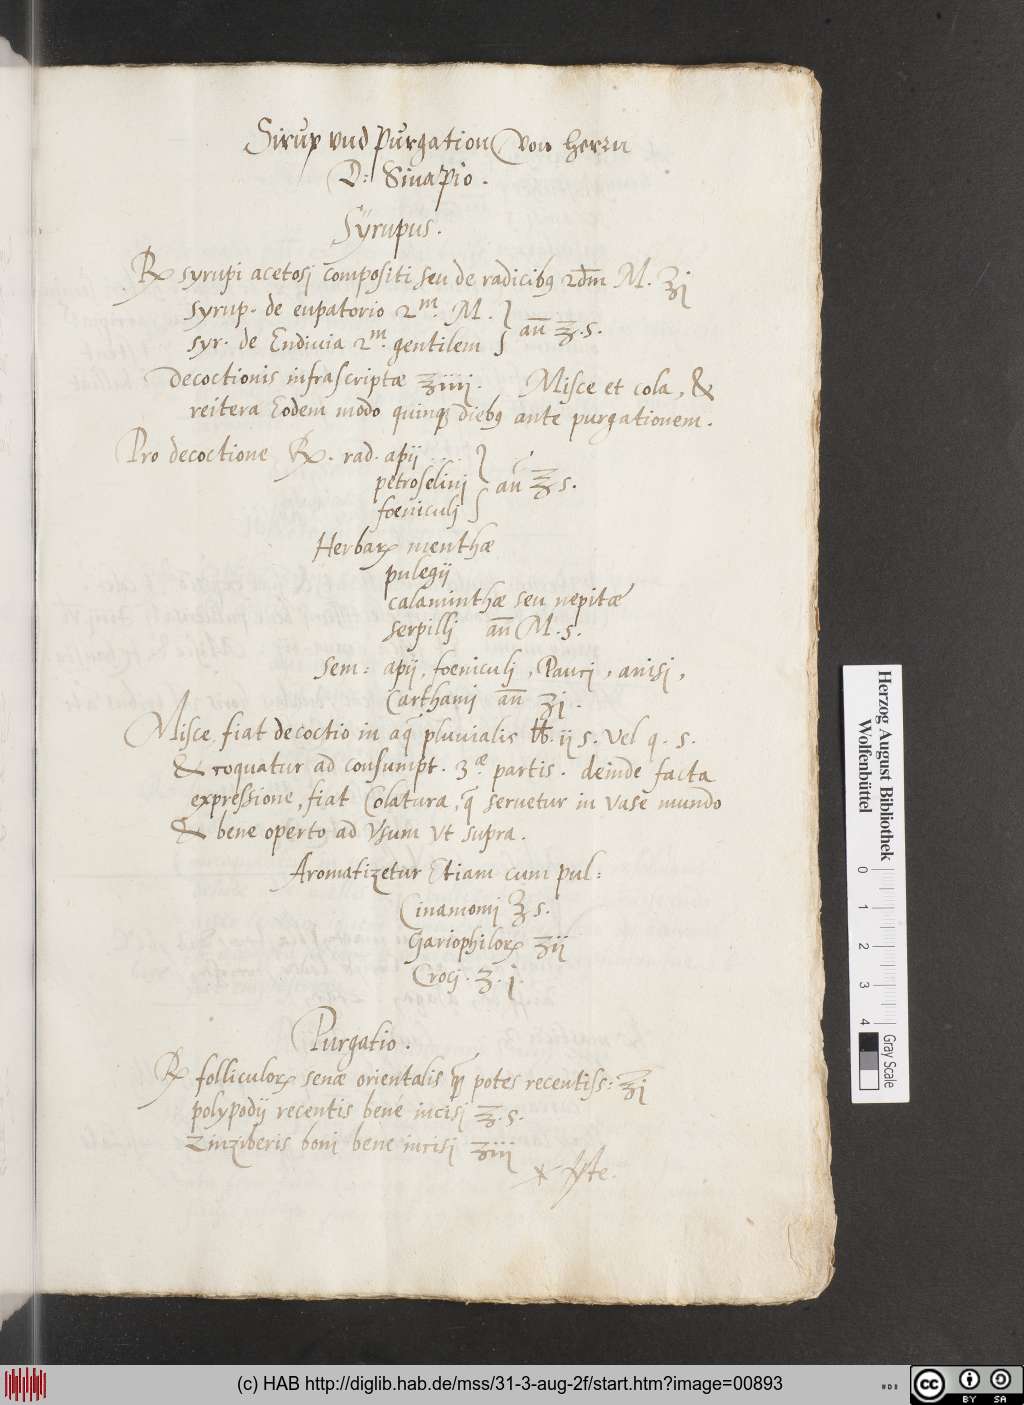 Sirup vnd Purgation von Herrn
D: Sinapio.
Syrupus.
℞ syrupi acetosi compositi seu de radicibꝯ 2dm M. ℥j
syrup. de eupatorio 2m. M.
syr. de Endiuia 2m. gentilem } añ ℥.s.
decoctionis infrascriptæ ℥iiij. Misce et cola, &
reitera Eodem modo quinqꝫ diebꝯ ante purgationem.
Pro decoctione ℞. rad. apij
petroselinj } añ ℥s.
fœniculj
Herbarꝝ menthæ
pulegij
calaminthæ seu nepitæ
serpillj añ M.s.
Sem: apij, fœniculj, Daucj, anisj,
Carthamj añ ʒj.
Misce, fiat decoctio in aq̃ pluuialis ℔.ij s. vel q. s.
& coquatur ad consumpt. 3æ. partis. deinde facta
expressione, fiat Colatura, q̃ seruetur in vase mundo
& bene operto ad vsum vt supra.
Aromatizetur Etiam cum pul:
Cinamomj ℥s.
Gariophilorꝝ ʒij
Crocj. ʒ.j.
Purgatio.
℞ folliculorꝝ senæ orientalis potes recentiss: ℥j
polypodij recentis bene incisj ℥.s.
Zinziberis bonj bene incisj ʒiij
Herzog August Bibliothek
Wolfenbüttel
0 1 2 3 4
Gray Scale
(c) HAB http://diglib.hab.de/mss/31-3-aug-2f/start.htm?image=00893
cc BY SA